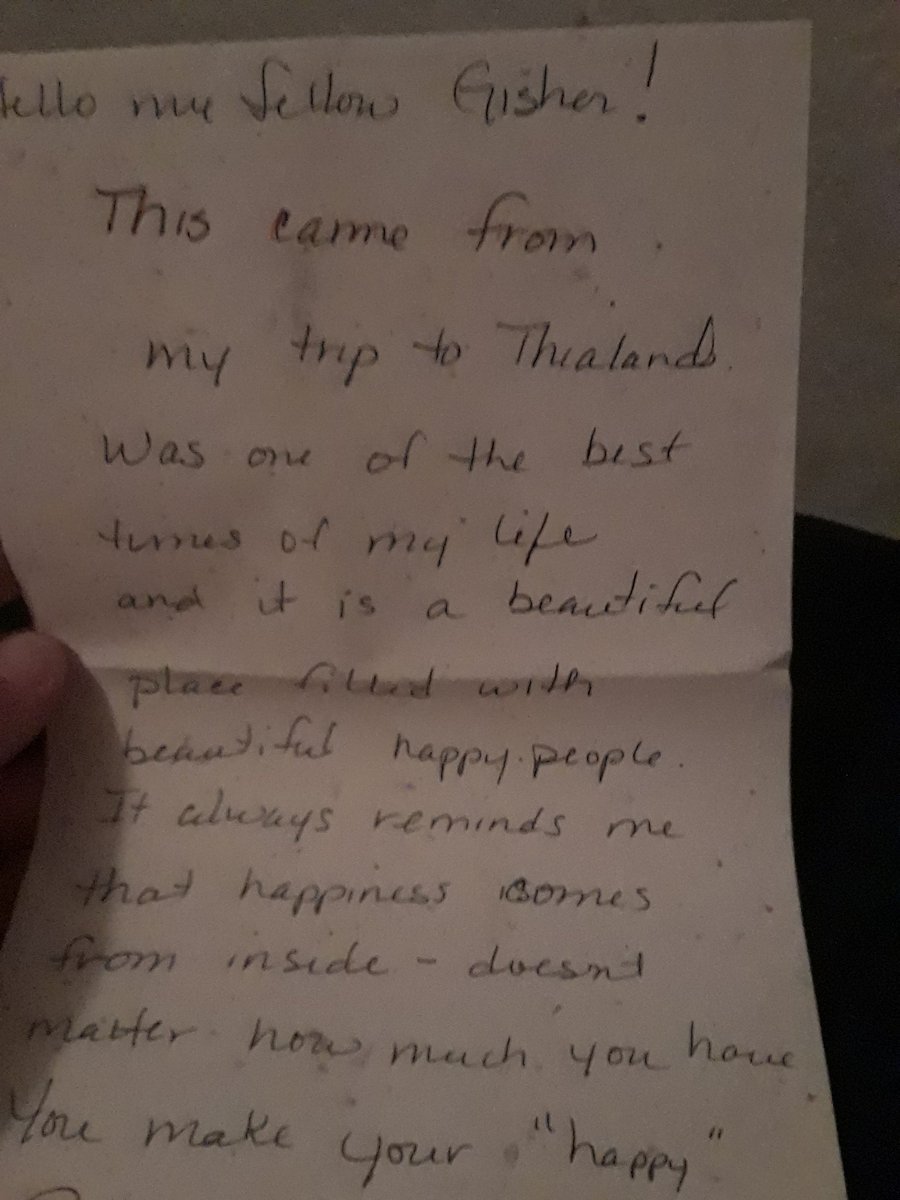 Hello my fellow Gisher!
This came from
my trip to Thialand.
Was one of the best
times of my life
and it is a beautiful
place filled with
beautiful happy people.
It always reminds me
that happiness comes
from inside - doesnt
matter how much you have
You make your "happy"